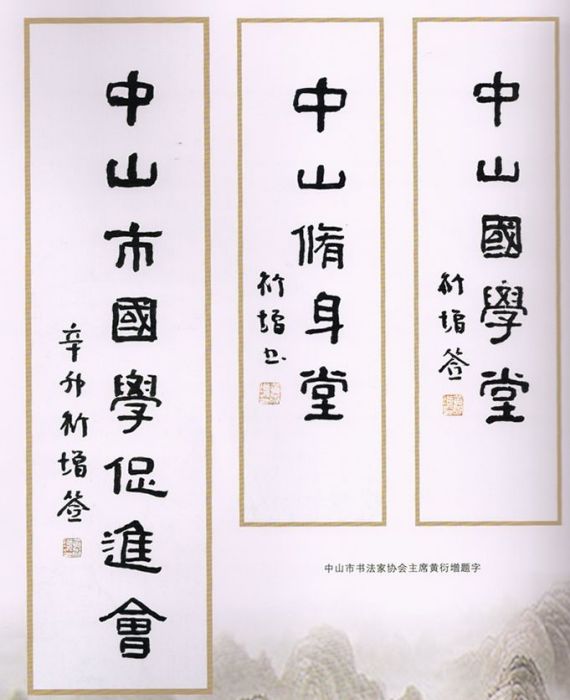 中山國學堂
衍增签
中山脩身堂
衍增书
中山市國學促進會
辛卯衍增签
中山市书法家协会主席黄衍增题字